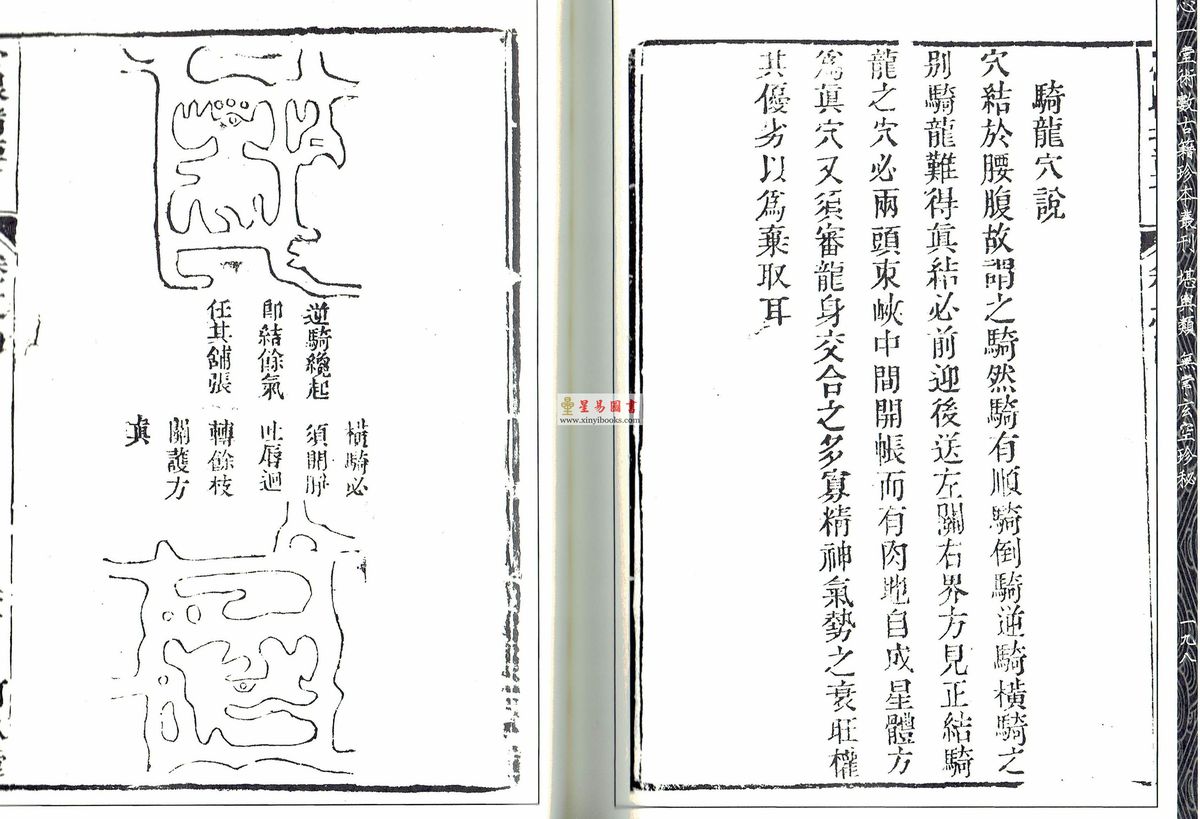 心一堂術數古籍珍本叢刊 堪輿類 無常玄空珍秘
一九八
騎龍穴說
穴結於腰腹故謂之騎然騎有順騎倒騎逆騎橫騎之
別騎龍難得眞結必前迎後送左關右界方見正結騎
龍之穴必兩頭束峽中間開帳而有肉地自成星體方
爲眞穴又須審龍身交合之多寡精神氣勢之衰旺權
其優劣以爲棄取耳
星易圖書
www.xinyibooks.com
逆騎纔起
即結餘氣
任其舖張
橫騎必
須開屏
吐唇迴
轉餘枝
關護方
眞